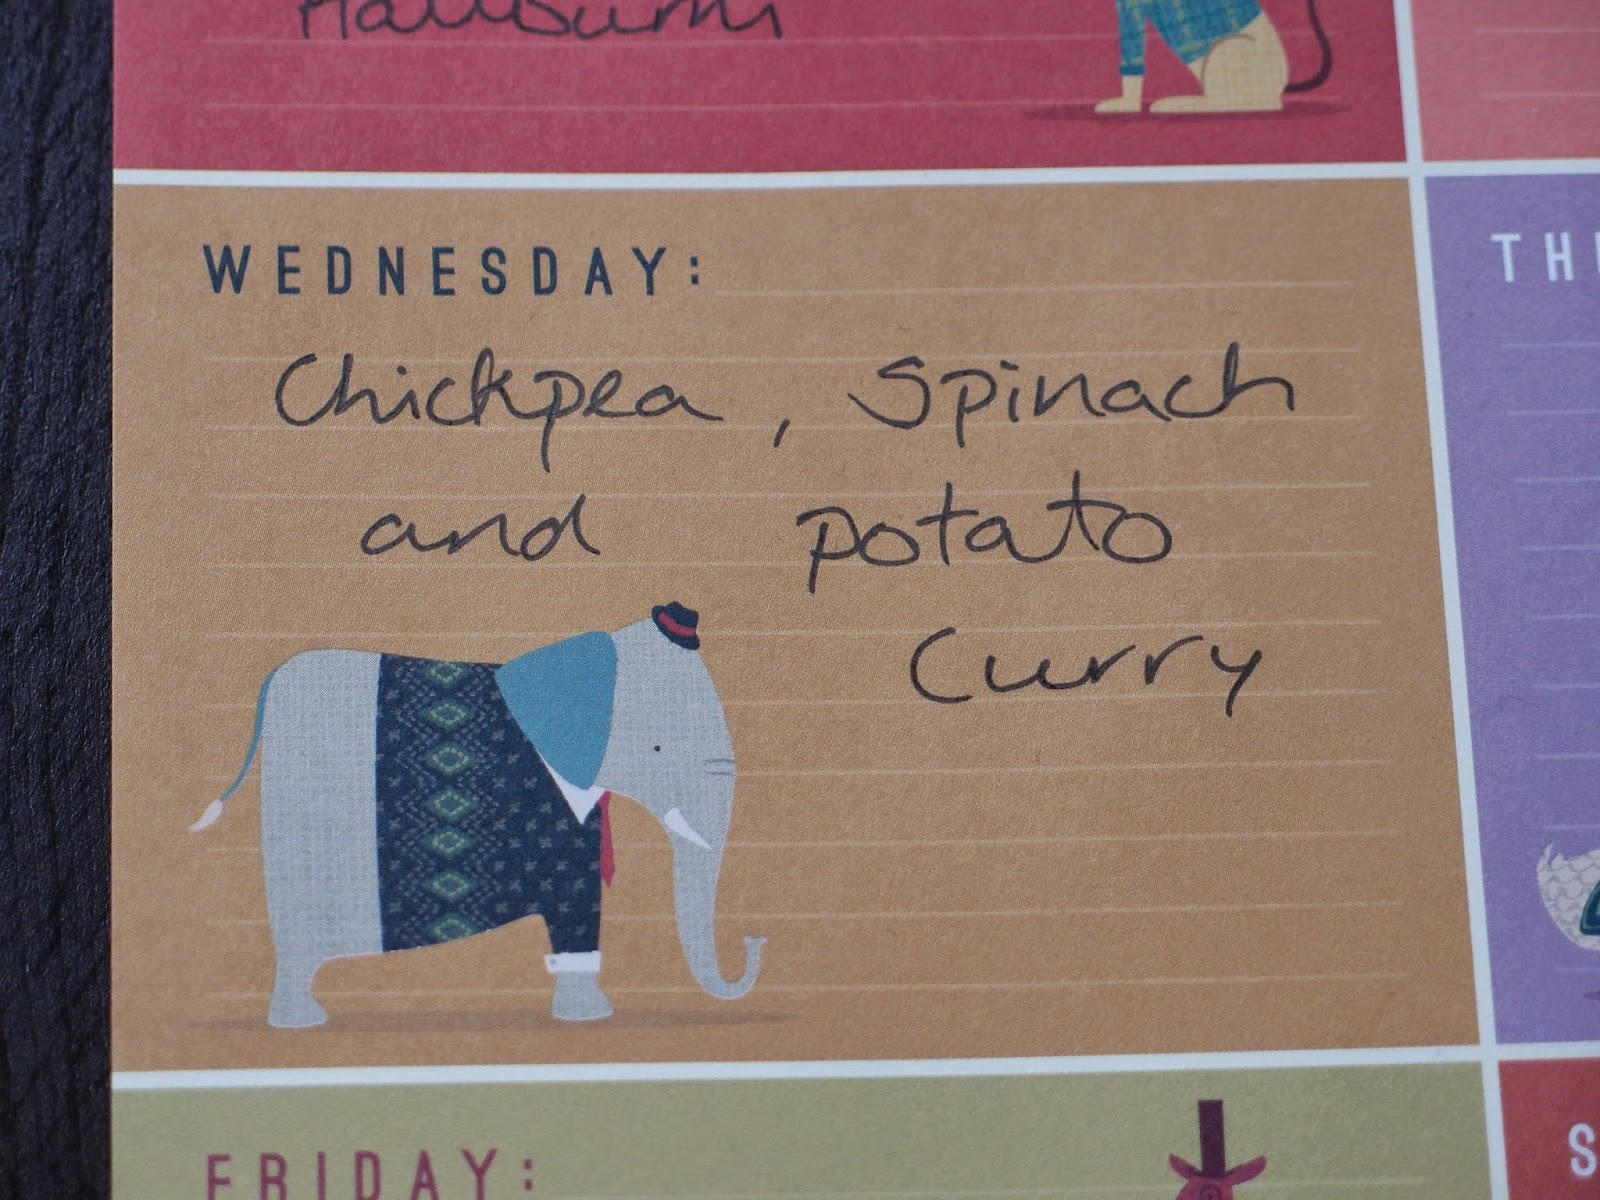 Halloumi
WEDNESDAY:
Chickpea, Spinach
and potato
Curry
TH
FRIDAY:
S